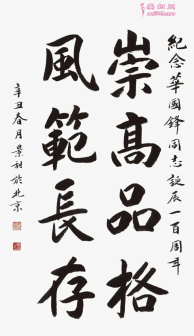 紀念華國鋒同志誕辰一百周年
崇高品格
風範長存
辛丑春月景和於北京